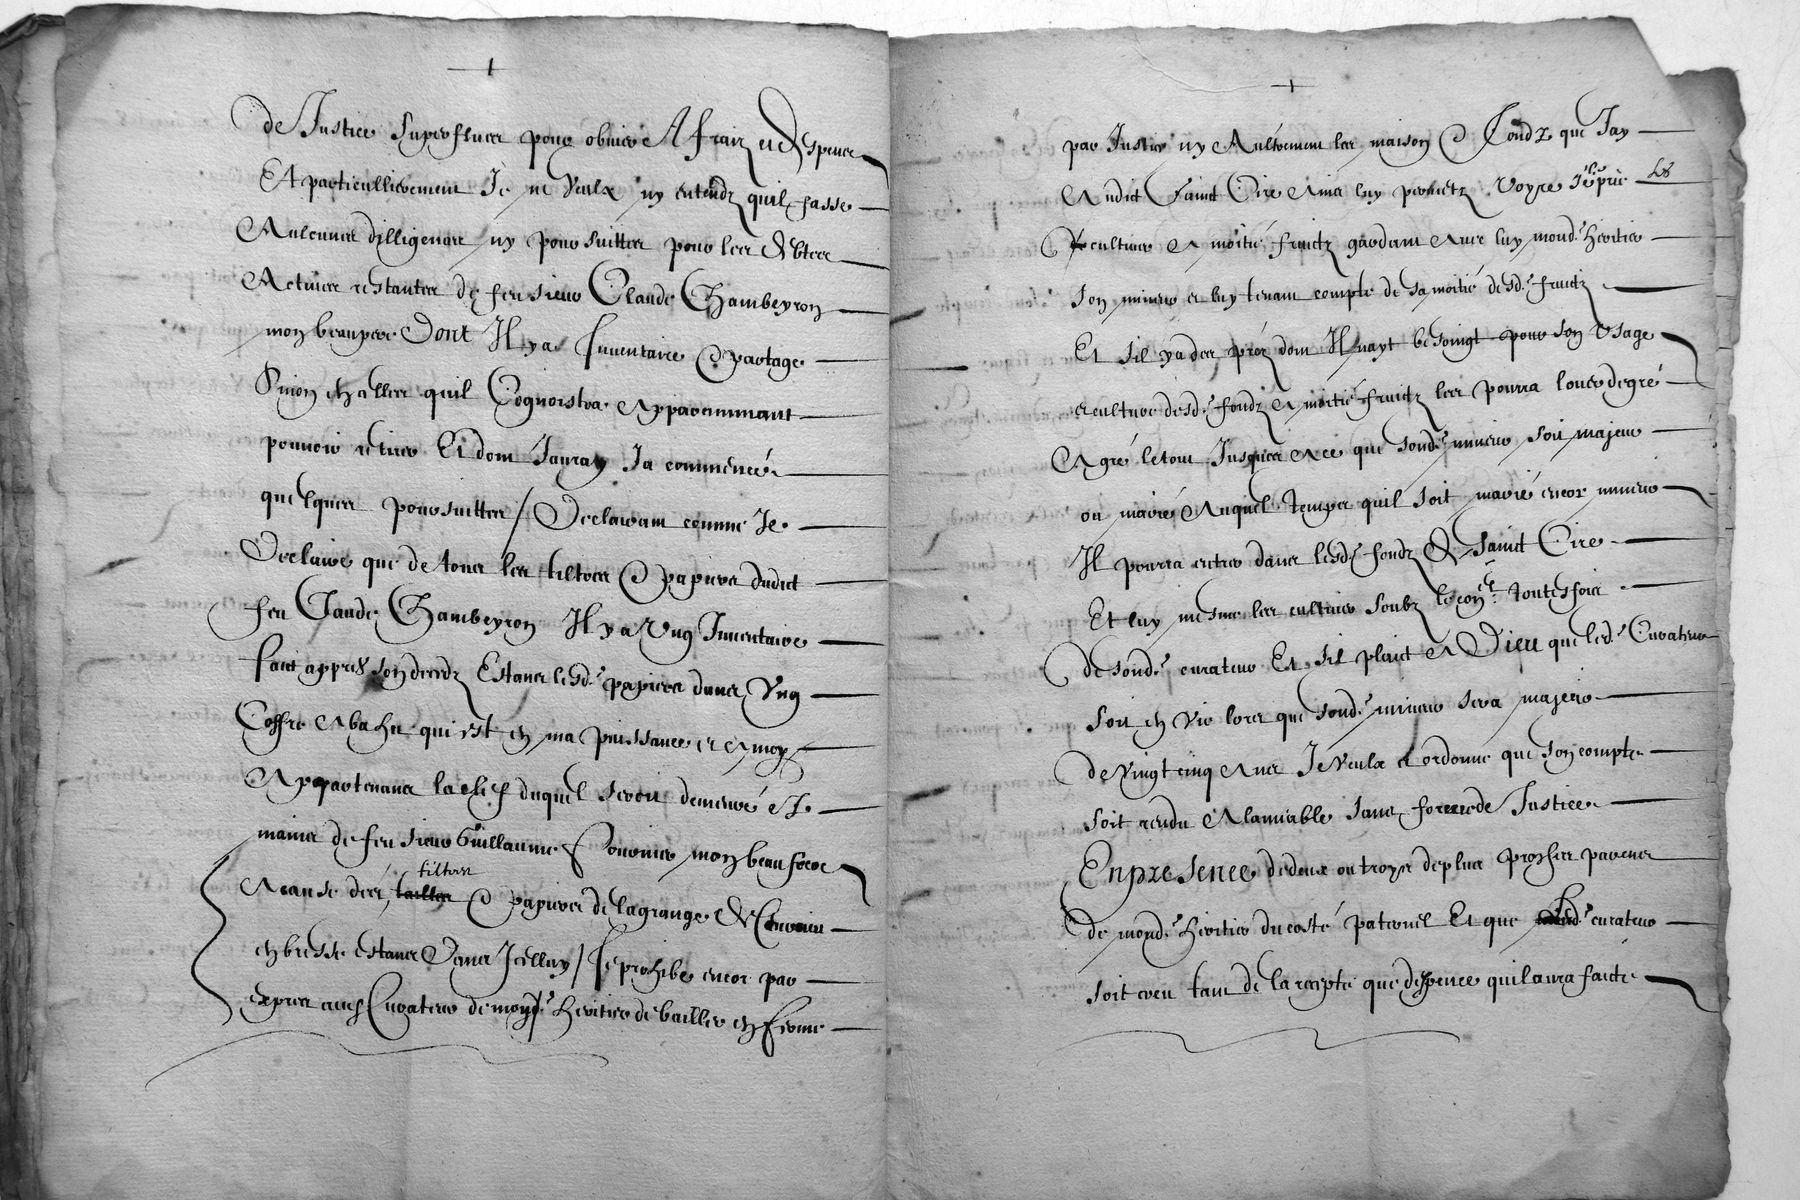 de Justice superflues pour obvier A fraiz et despences
Et particullierement Je ne veulx ny entendz quil fasse
Aulcunes dilligences ny poursuittes pour les debtes
Actives restantes de feu sieur Claude Chambeyron
mon beaupere Dont Il y a Inventaire & partage
Sinon et celles quil Cognoistra Apparemmant
pouvoir retirer Et dont Jauray Ja commencé
quelques poursuittes / Declairant comme Je
Declaire que de tous les tiltres & papiers dudict
feu Claude Chambeyron Il y a Ung Inventaire
faict appres son decedz Estans lesd. papiers dans Ung
Coffre A bahu qui est en ma puissance et A moy
Appartenant la clef duquel seroit demeuré Es
mains de feu sieur Guillaume Souvnier mon beau frere
tiltres
A cause des tailles & papiers de la grange De
en bresse estans Dans Icelluy / Je prohibe encor par
expres aud Curateur de mond. heritier de bailler en ferme
par Justice ny Aultrement les maison & Fondz que Jay
Audict Sainct Cire Ains luy permetz voyre Je le prie
De cultiver A moitié fruictz gardant Avec luy mond. heritier
Son mineur et luy tenant compte de sa moitié desd. fruictz
Et sil y a des prez dont Il nayt besoingt pour son Usage
et culture desd. fondz A moitié fruictz les pourra louer de gré
A gré le tout Jusques A ce que sond. mineur soit majeur
ou marié Auquel temps quil soit marié encor mineur
Il pourra entrer dans lesd. fondz De Sainct Cire
Et luy mesme les cultiver soubz le con.t toutesfois
de sond. curateur Et sil plaict A Dieu que led. Curateur
soit en vie lors que sond. mineur sera majeur
de vingt cinq Ans Je veulx et ordonne que son compte
soit rendu A lamiable sans forme de Justice
En presence de deux ou troys de plus proches parens
de mond. heritier du costé paternel Et que led. curateur
soit creu tant de la recepte que despence quil aura faicte